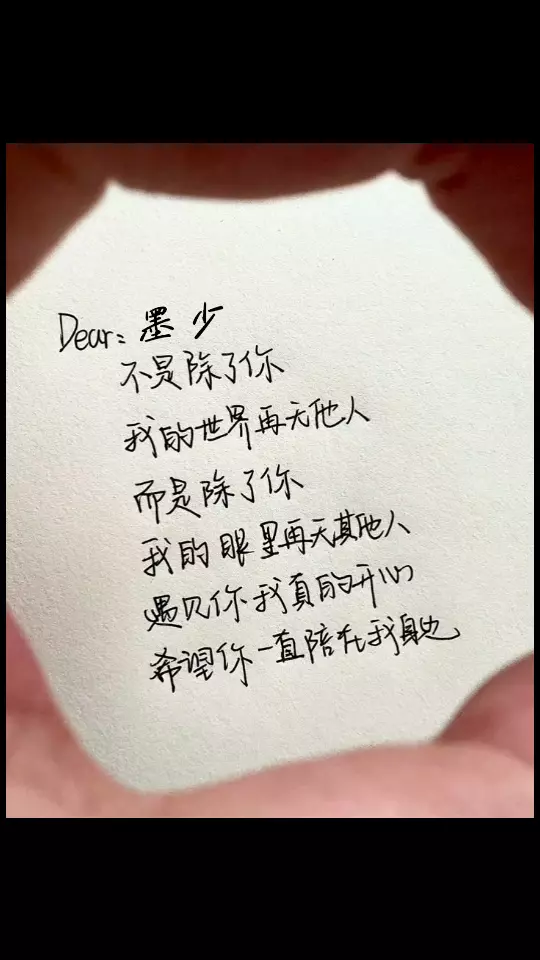 Dear: 墨少
不是除了你
我的世界再无他人
而是除了你
我的眼里再无其他人
遇见你我真的开心
希望你一直陪在我身边